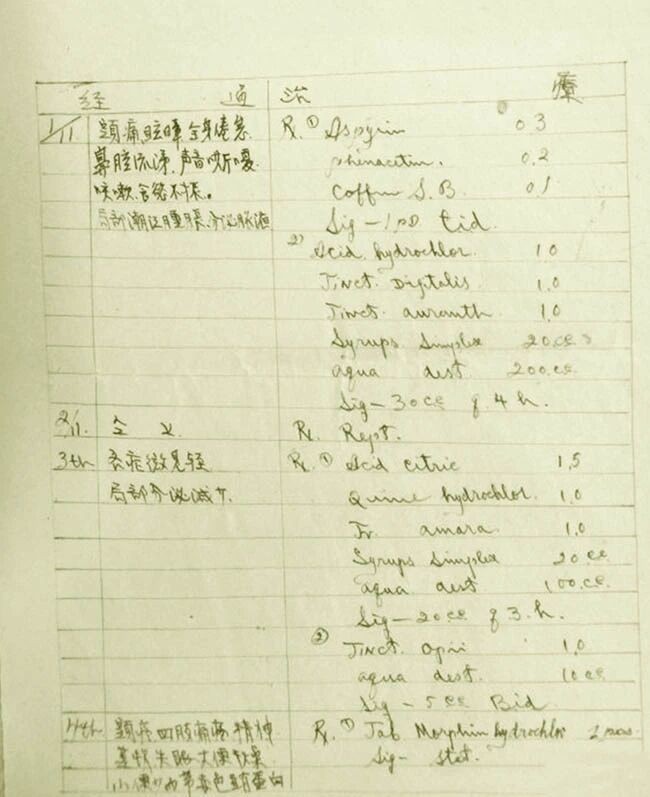 经 过 治 療
1/11 頭痛眩暈全身倦怠 Rx ① Aspyrin 0.3
鼻腔流涕,声音嘶嗄 phenacetin. 0.2
咳嗽,食慾不振。 Coffin S.B. 0.1
局部潮红腫脹,分泌脓液 Sig — 1 PD tid.
2) Acid hydrochlor. 1.0
Tinct. Digitalis 1.0
Tinct. auranth 1.0
Syrups Simplex 20.cc
aqua dest 200.cc.
Sig — 30 cc q. 4 h.
2/11. 仝 上 Rx. Rept.
3th 各症微見轻 Rx ① Acid citric 1.5
局部分泌減少 Quine hydrochlor. 1.0
Tr. amara. 1.0
Syrups Simplex 20 cc
aqua dest 100.cc.
Sig — 20 cc q 3. h.
② Tinct. Opii 1.0
aqua dest. 10 cc
Sig — 5 cc Bid
4th 頭疼四肢痛 精神 Rx. ① Tab Morphin hydrochlor
失眠大便 Sig — Stat.
小便 蛋白